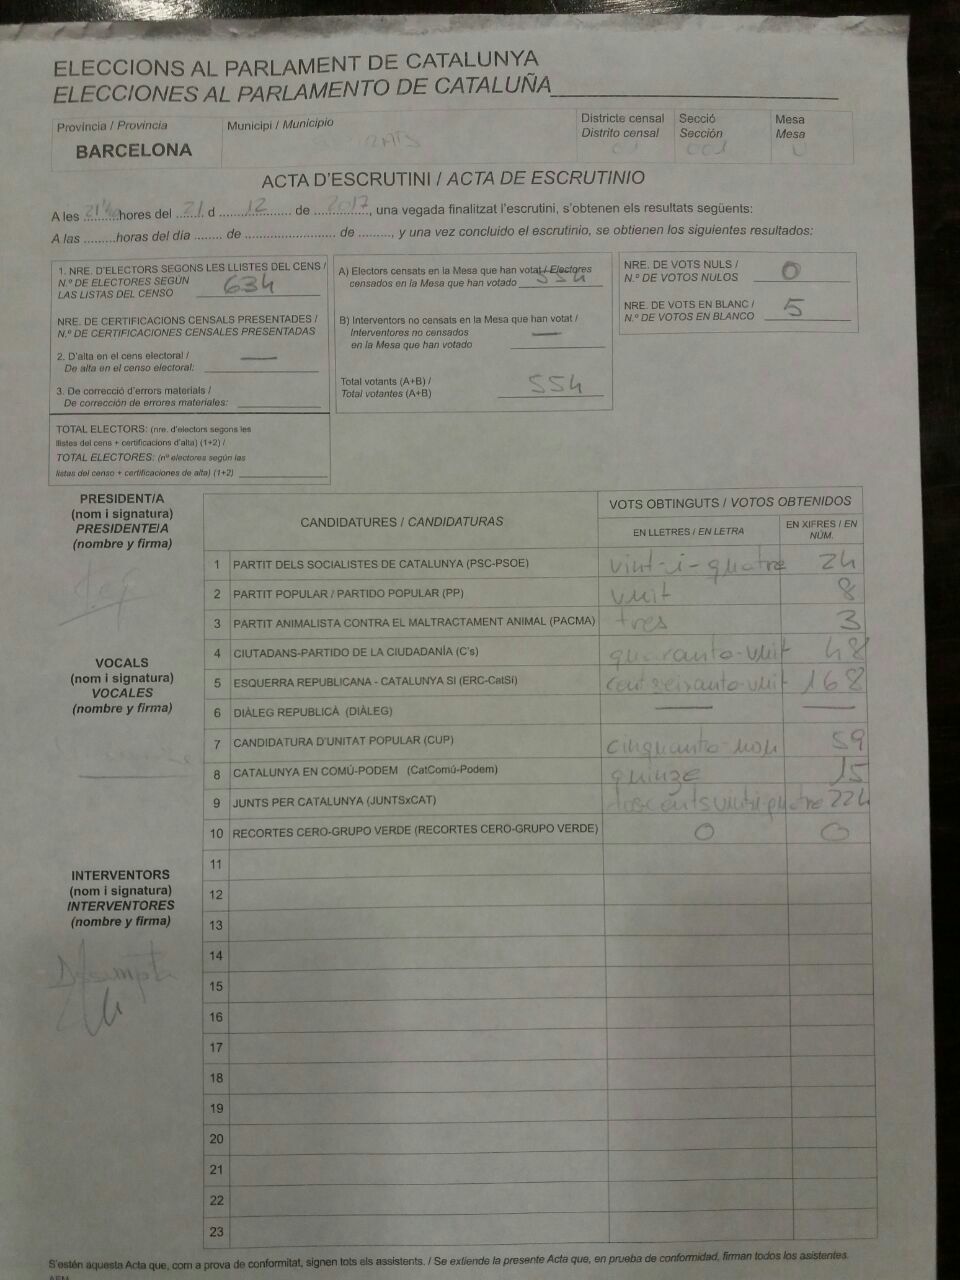 ELECCIONS AL PARLAMENT DE CATALUNYA
ELECCIONES AL PARLAMENTO DE CATALUÑA
Província / Provincia
BARCELONA
Municipi / Municipio
Districte censal
Distrito censal
01
Secció
Sección
001
Mesa
Mesa
U
ACTA D'ESCRUTINI / ACTA DE ESCRUTINIO
A les 21'40 hores del 21 d 12 de 2017, una vegada finalitzat l'escrutini, s'obtenen els resultats següents:
A las .........horas del día ........ de .......................... de ........., y una vez concluido el escrutinio, se obtienen los siguientes resultados:
1. NRE. D'ELECTORS SEGONS LES LLISTES DEL CENS /
N.º DE ELECTORES SEGÚN
LAS LISTAS DEL CENSO 634
NRE. DE CERTIFICACIONS CENSALS PRESENTADES /
N.º DE CERTIFICACIONES CENSALES PRESENTADAS
2. D'alta en el cens electoral / —
De alta en el censo electoral:
3. De correcció d'errors materials /
De corrección de errores materiales:
TOTAL ELECTORS: (nre. d'electors segons les
llistes del cens + certificacions d'alta) (1+2) /
TOTAL ELECTORES: (nº electores según las
listas del censo + certificaciones de alta) (1+2)
A) Electors censats en la Mesa que han votat / Electores
censados en la Mesa que han votado 554
B) Interventors no censats en la Mesa que han votat /
Interventores no censados —
en la Mesa que han votado
Total votants (A+B) /
Total votantes (A+B) 554
NRE. DE VOTS NULS /
N.º DE VOTOS NULOS 0
NRE. DE VOTS EN BLANC /
N.º DE VOTOS EN BLANCO 5
PRESIDENT/A
(nom i signatura)
PRESIDENTE/A
(nombre y firma)
VOCALS
(nom i signatura)
VOCALES
(nombre y firma)
INTERVENTORS
(nom i signatura)
INTERVENTORES
(nombre y firma)
CANDIDATURES / CANDIDATURAS
VOTS OBTINGUTS / VOTOS OBTENIDOS
EN LLETRES / EN LETRA
EN XIFRES / EN NÚM.
1 PARTIT DELS SOCIALISTES DE CATALUNYA (PSC-PSOE) vint-i-quatre 24
2 PARTIT POPULAR / PARTIDO POPULAR (PP) vuit 8
3 PARTIT ANIMALISTA CONTRA EL MALTRACTAMENT ANIMAL (PACMA) tres 3
4 CIUTADANS-PARTIDO DE LA CIUDADANÍA (C's) quaranta-vuit 48
5 ESQUERRA REPUBLICANA - CATALUNYA SI (ERC-CatSí) cent seixanta-vuit 168
6 DIÀLEG REPUBLICÀ (DIÀLEG) — —
7 CANDIDATURA D'UNITAT POPULAR (CUP) cinquanta-nou 59
8 CATALUNYA EN COMÚ-PODEM (CatComú-Podem) quinze 15
9 JUNTS PER CATALUNYA (JUNTSxCAT) doscents vintiquatre 224
10 RECORTES CERO-GRUPO VERDE (RECORTES CERO-GRUPO VERDE) 0 0
11
12
13
14
15
16
17
18
19
20
21
22
23
S'estén aquesta Acta que, com a prova de conformitat, signen tots els assistents. / Se extiende la presente Acta que, en prueba de conformidad, firman todos los asistentes.